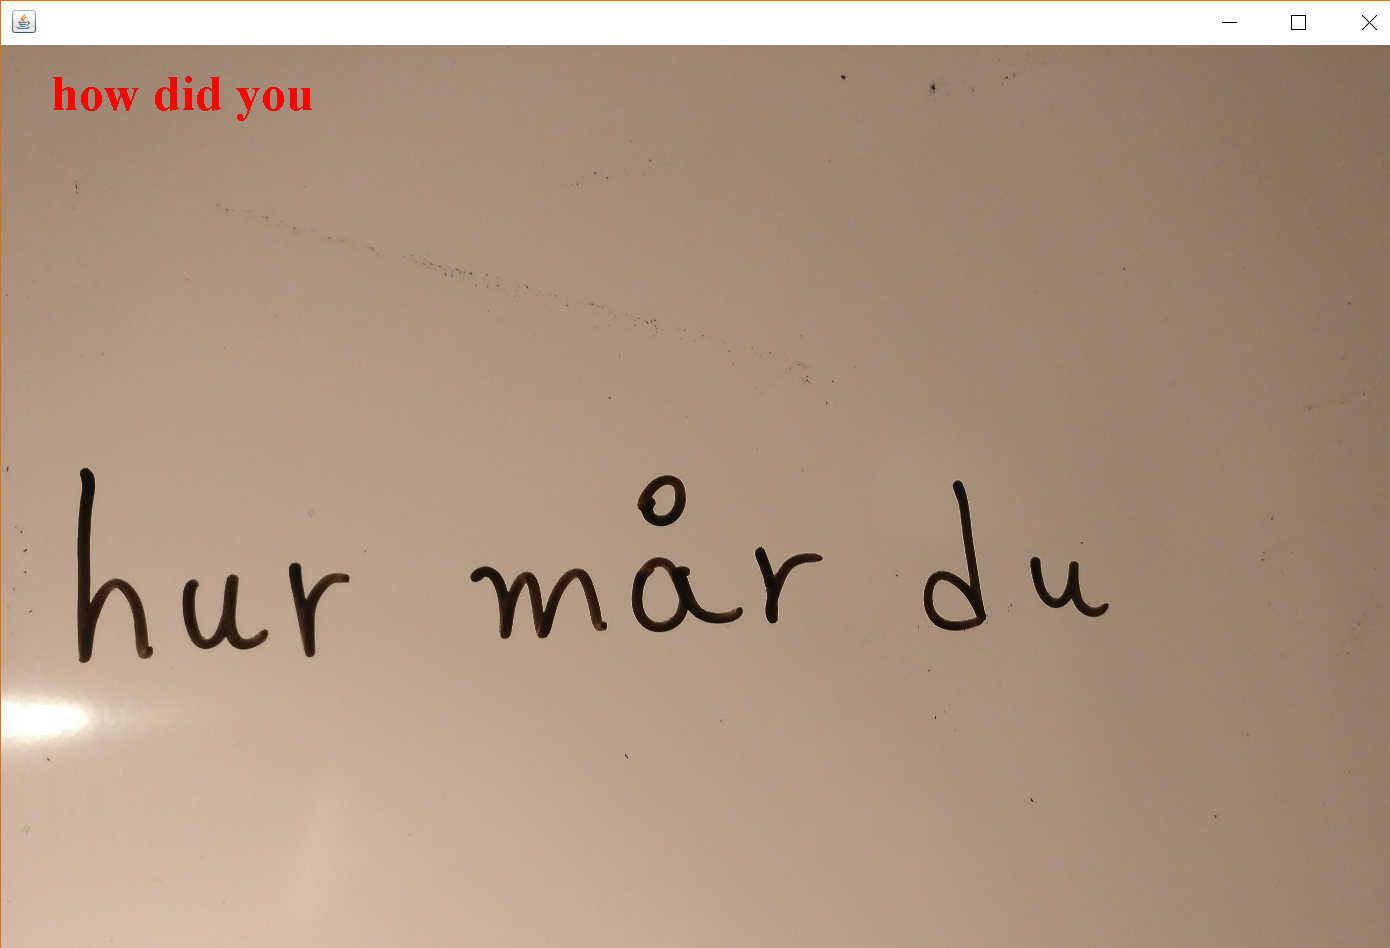 how did you
hur mår du